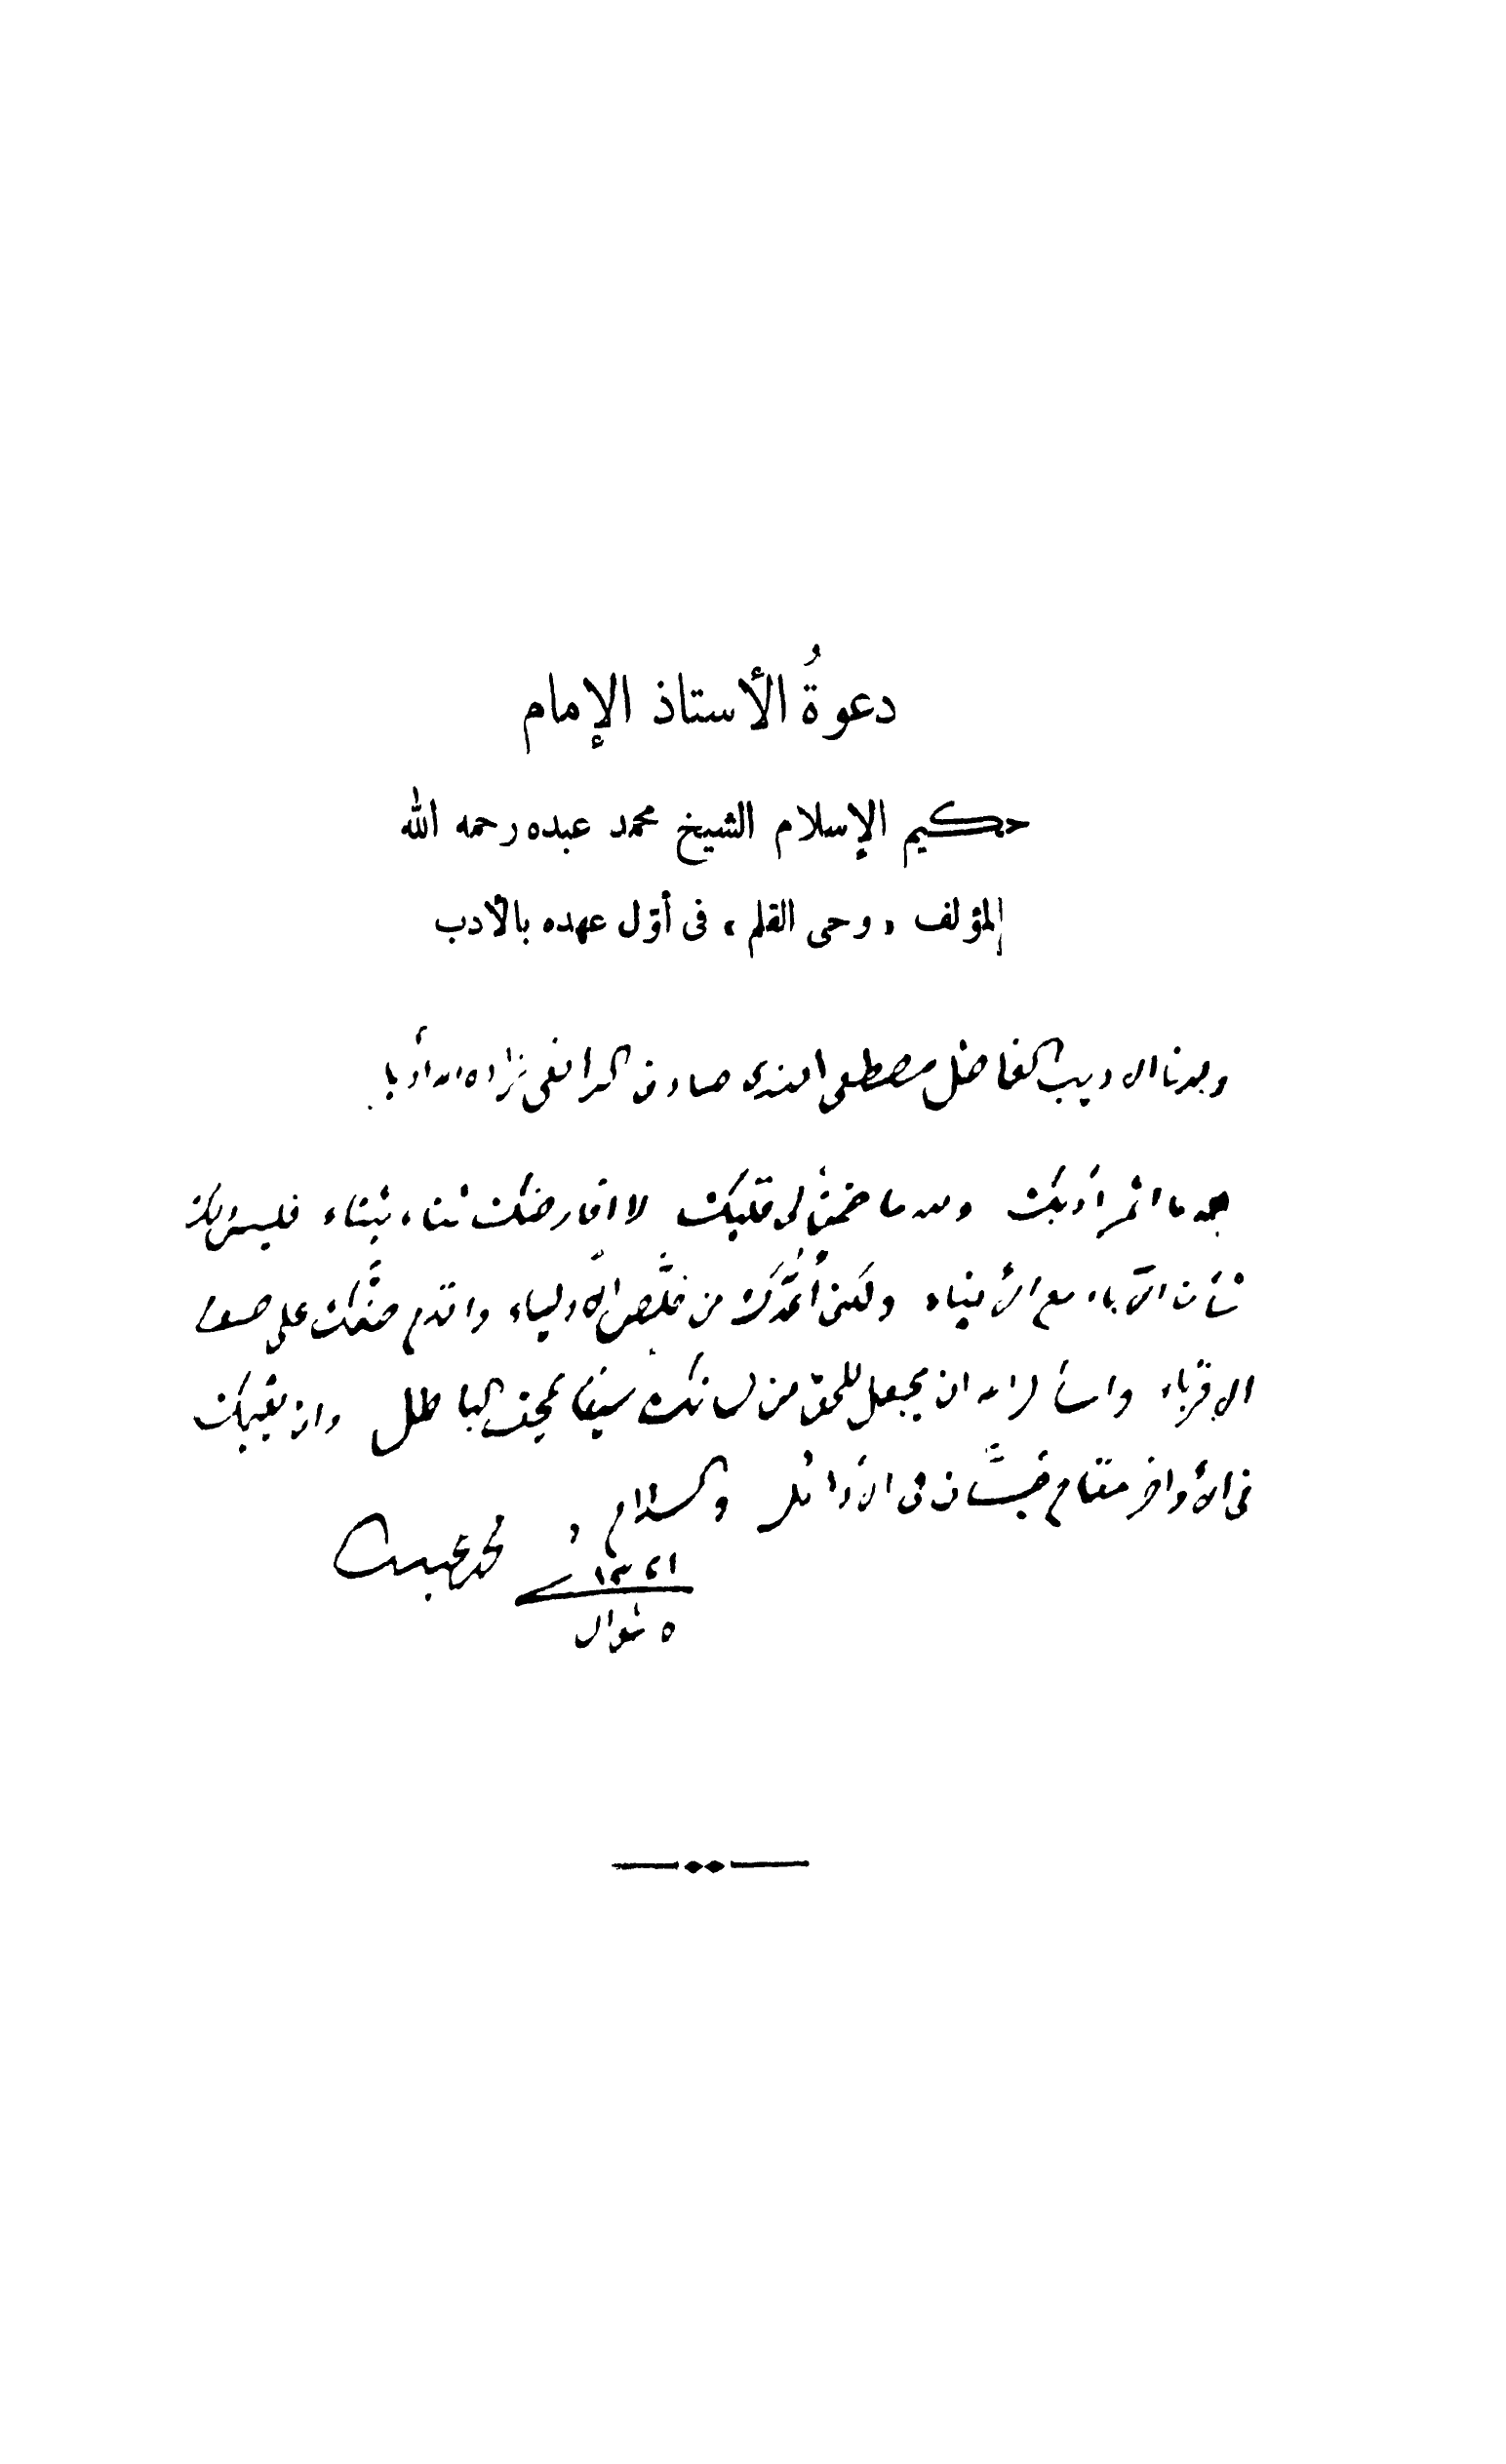 دعوةُ الأستاذ الإمام
حكيم الإسلام الشيخ محمد عبده رحمه الله
لمؤلف « وحى القلم » فى أوّل عهده بالأدب
ولدنا الاديب الفاضل مصطفى افندى صادق الرافعى زاده الله أدبا
لله ما اثمر أدبك ولله ما ضمن لى قلبك لا اقارضك ثناء بثناء فليس ذلك
شأن الآباء مع الأبناء ولكنى أعدّك من خلّص الأولياء واقدم صفّك على صف
الاقرباء واسأل الله ان يجعل للحق من لسانك سيفا يمحق الباطل وان يقيمك
فى الأواخر مقام حسّان فى الأوائل والسلام
محمد عبده
١٣٢١
٥ شوال